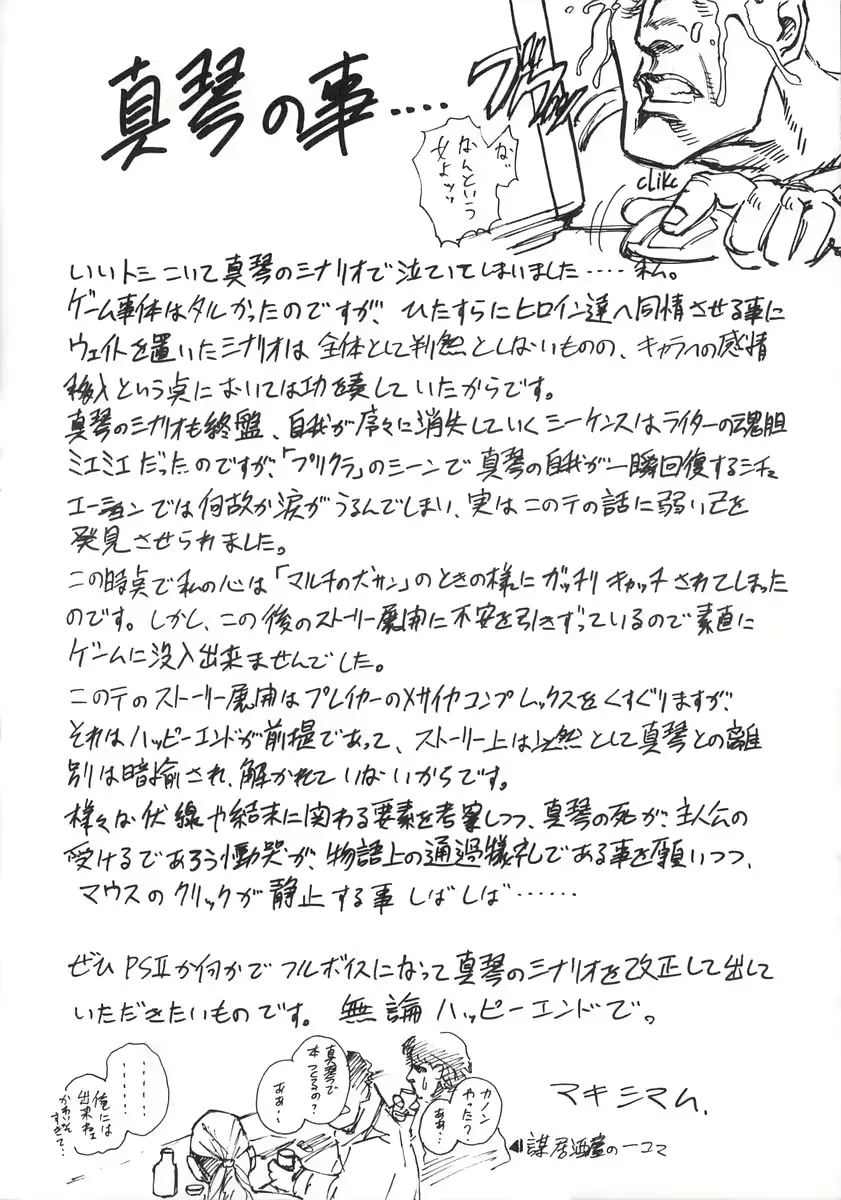 真琴の事････
なぜ
なんという
女よッッ
clikc
いいトシこいて真琴のシナリオで泣いてしまいました……私。
ゲーム事体はタルかったのですが、ひたすらにヒロイン達へ同情させる事に
ウェイトを置いたシナリオは全体として判然としないものの、キャラへの感情
移入という点においては功を奏していたからです。
真琴のシナリオも終盤、自我が序々に消失していくシーケンスはライターの魂胆
ミエミエだったのですが、「プリクラ」のシーンで真琴の自我が一瞬回復するシチュ
エーションでは何故か涙がうるんでしまい、実はこのテの話に弱い己を
発見させられました。
この時点で私の心は「マルチの犬サン」のときの様にガッチリキャッチされてしまった
のです。しかし、この後のストーリー展開に不安を引きずっているので素直に
ゲームに没入出来ませんでした。
このテのストーリー展開はプレイヤーのメサイヤコンプレックスをくすぐりますが、
それはハッピーエンドが前提であって、ストーリー上は必然として真琴との離
別は暗揄され、解かれていないからです。
様々な伏線や結末に関わる要素を考察しつつ、真琴の死が、主人公の
受けるであろう慟哭が、物語上の通過儀礼である事を願いつつ、
マウスのクリックが静止する事しばしば……
ぜひPSⅡか何かでフルボイスになって真琴のシナリオを改正して出して
いただきたいものです。無論ハッピーエンドで。
マキシマム.
カノン
やった?
ああ…
真琴で
本つくるの?
ああ…
･･････
俺には
出来ねェ
かわいそう
すぎて…
◀謀居酒屋の一コマ